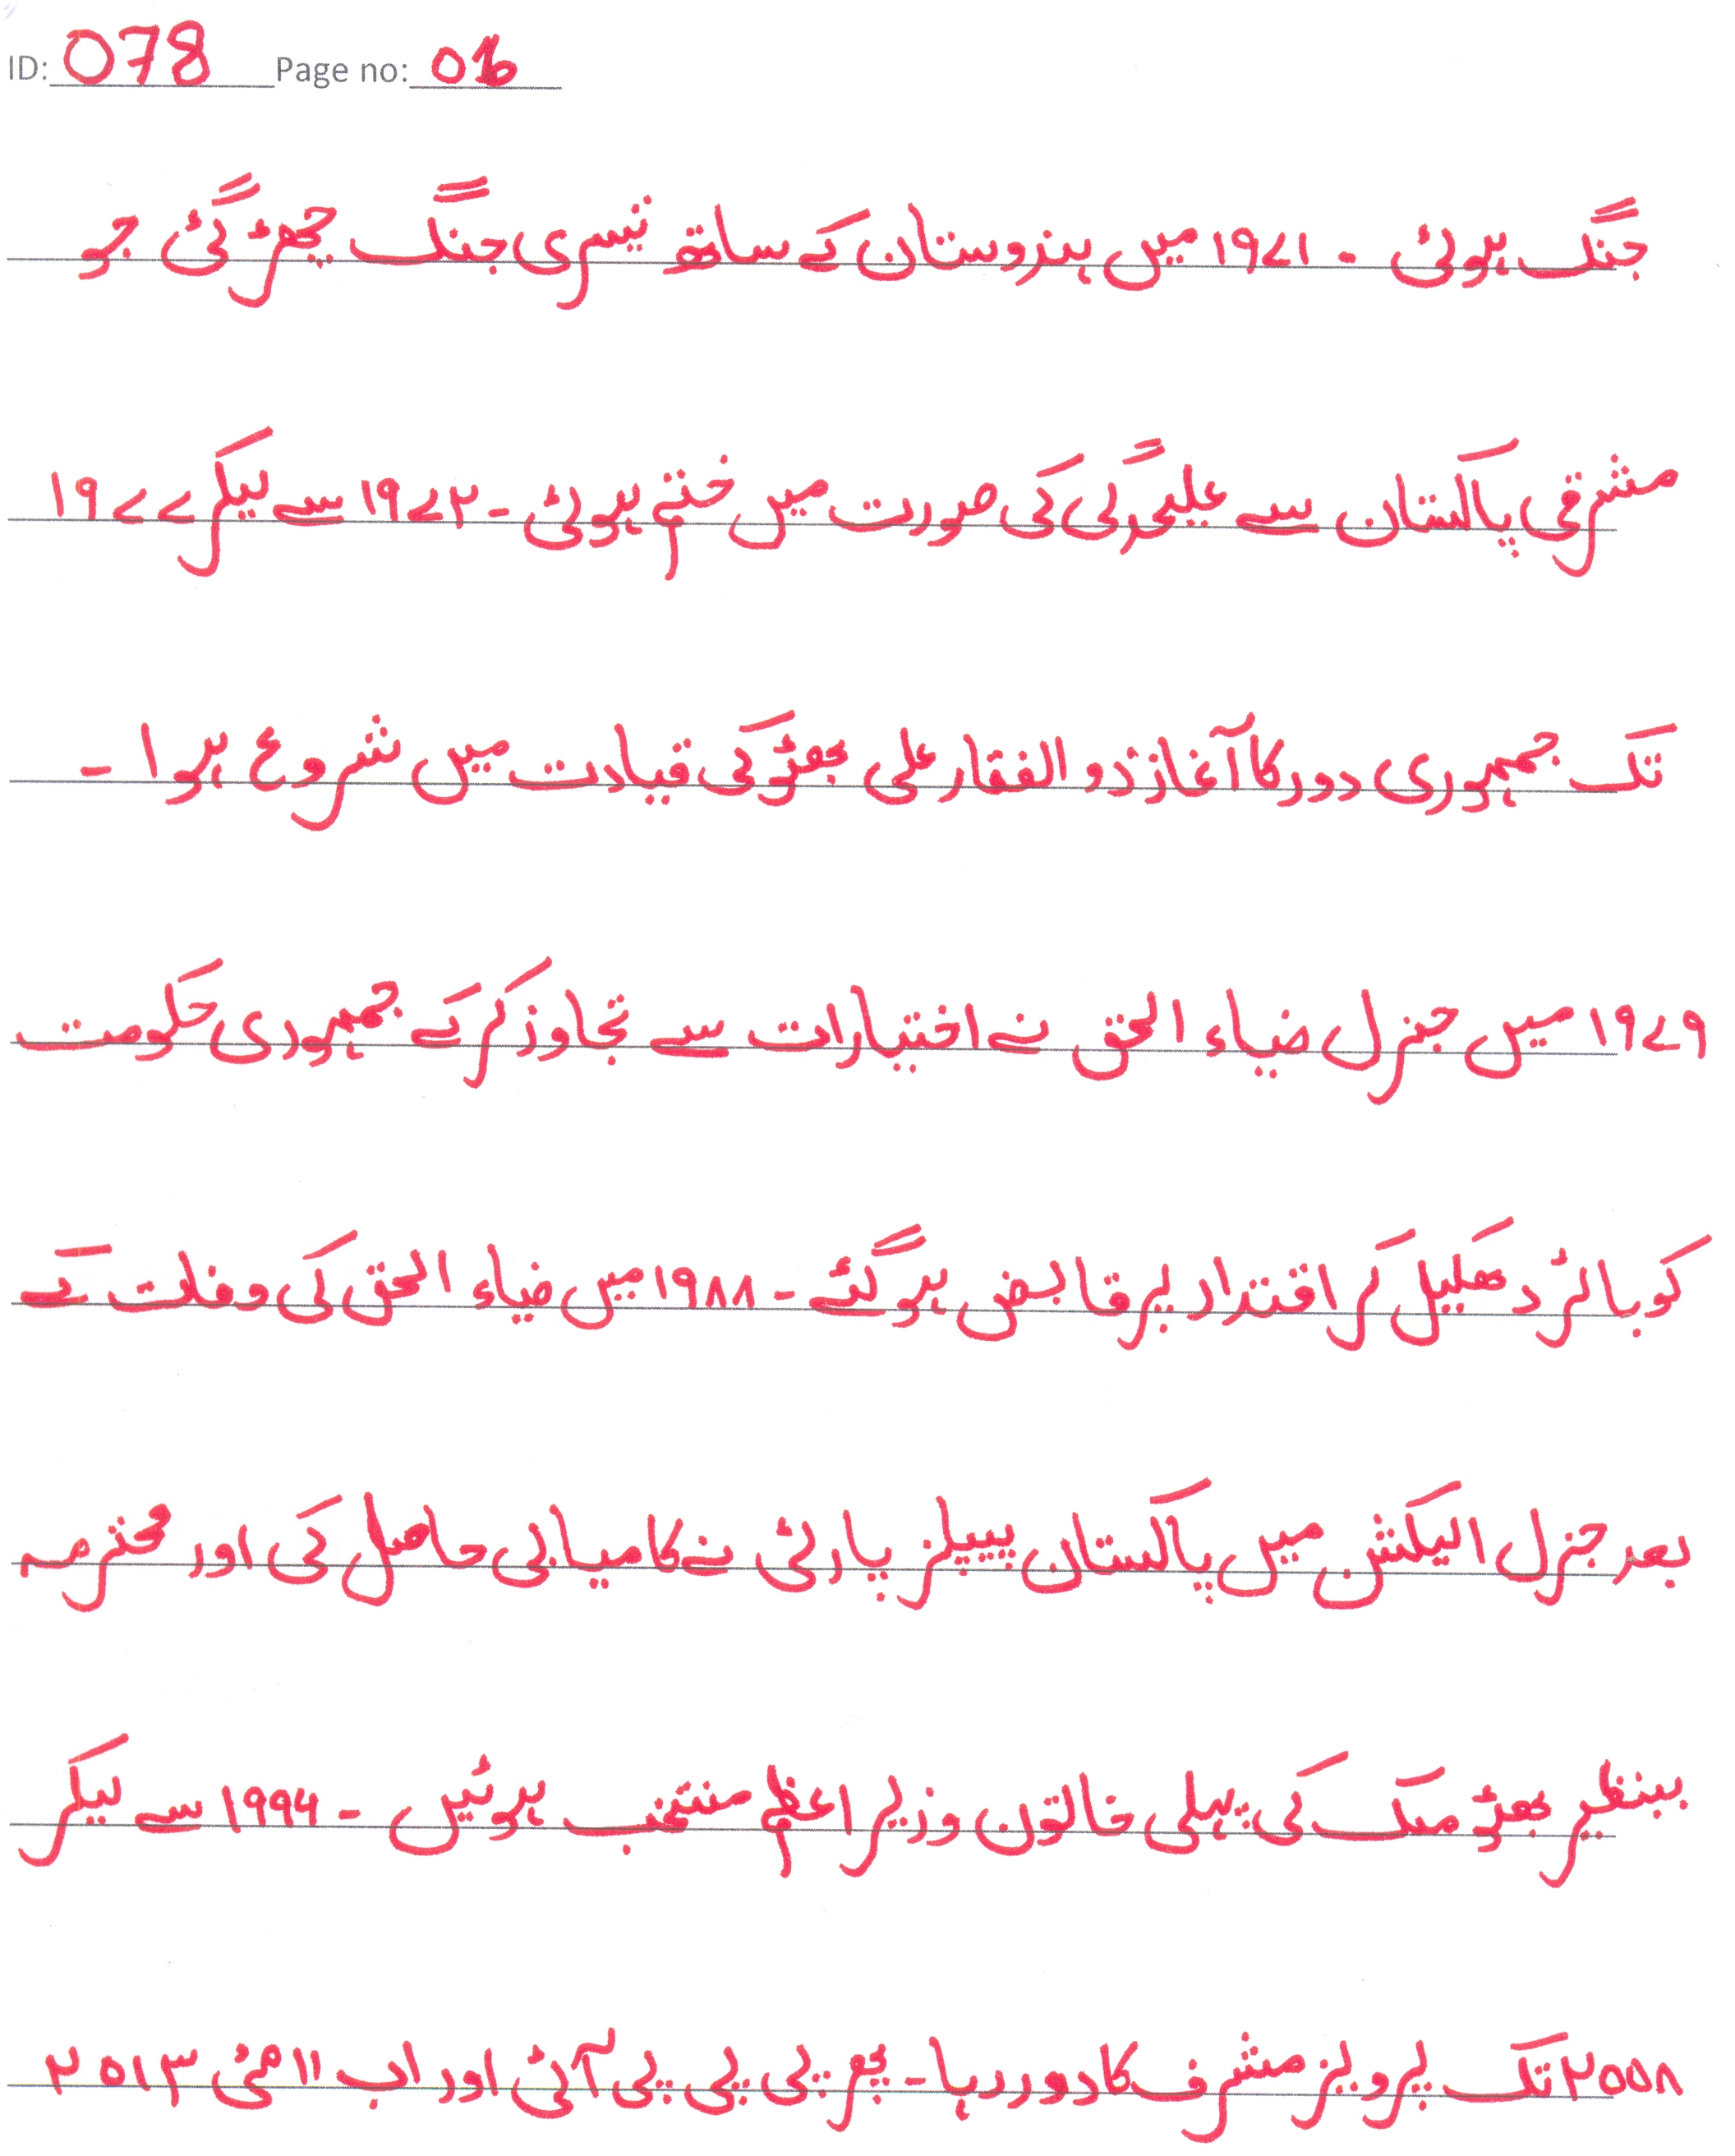 ID: 078 Page no: 06
جنگ ہوئی ۔ ۱۹۷۱ میں ہندوستان کے ساتھ تیسری جنگ چھڑ گئی جو
مشرقی پاکستان سے علیحدگی کی صورت میں ختم ہوئی ۔ ۱۹۷۲ سے لیکر ۱۹۷۷
تک جمہوری دور کا آغاز ذوالفقار علی بھٹو کی قیادت میں شروع ہوا ۔
۱۹۷۹ میں جنرل ضیاء الحق نے اختیارات سے تجاوز کر کے جمہوری حکومت
کو بائر دھکیل کر اقتدار پر قابض ہو گئے ۔ ۱۹۸۸ میں ضیاء الحق کی وفات کے
بعد جنرل الیکشن میں پاکستان پیپلز پارٹی نے کامیابی حاصل کی اور محترمہ
بینظیر بھٹو ملک کی پہلی خاتون وزیر اعظم منتخب ہوئیں ۔ ۱۹۹۶ سے لیکر
۲۰۰۸ تک پرویز مشرف کا دور رہا ۔ پھر پی پی پی آئی اور اب ۱۱ مئی ۲۰۱۳